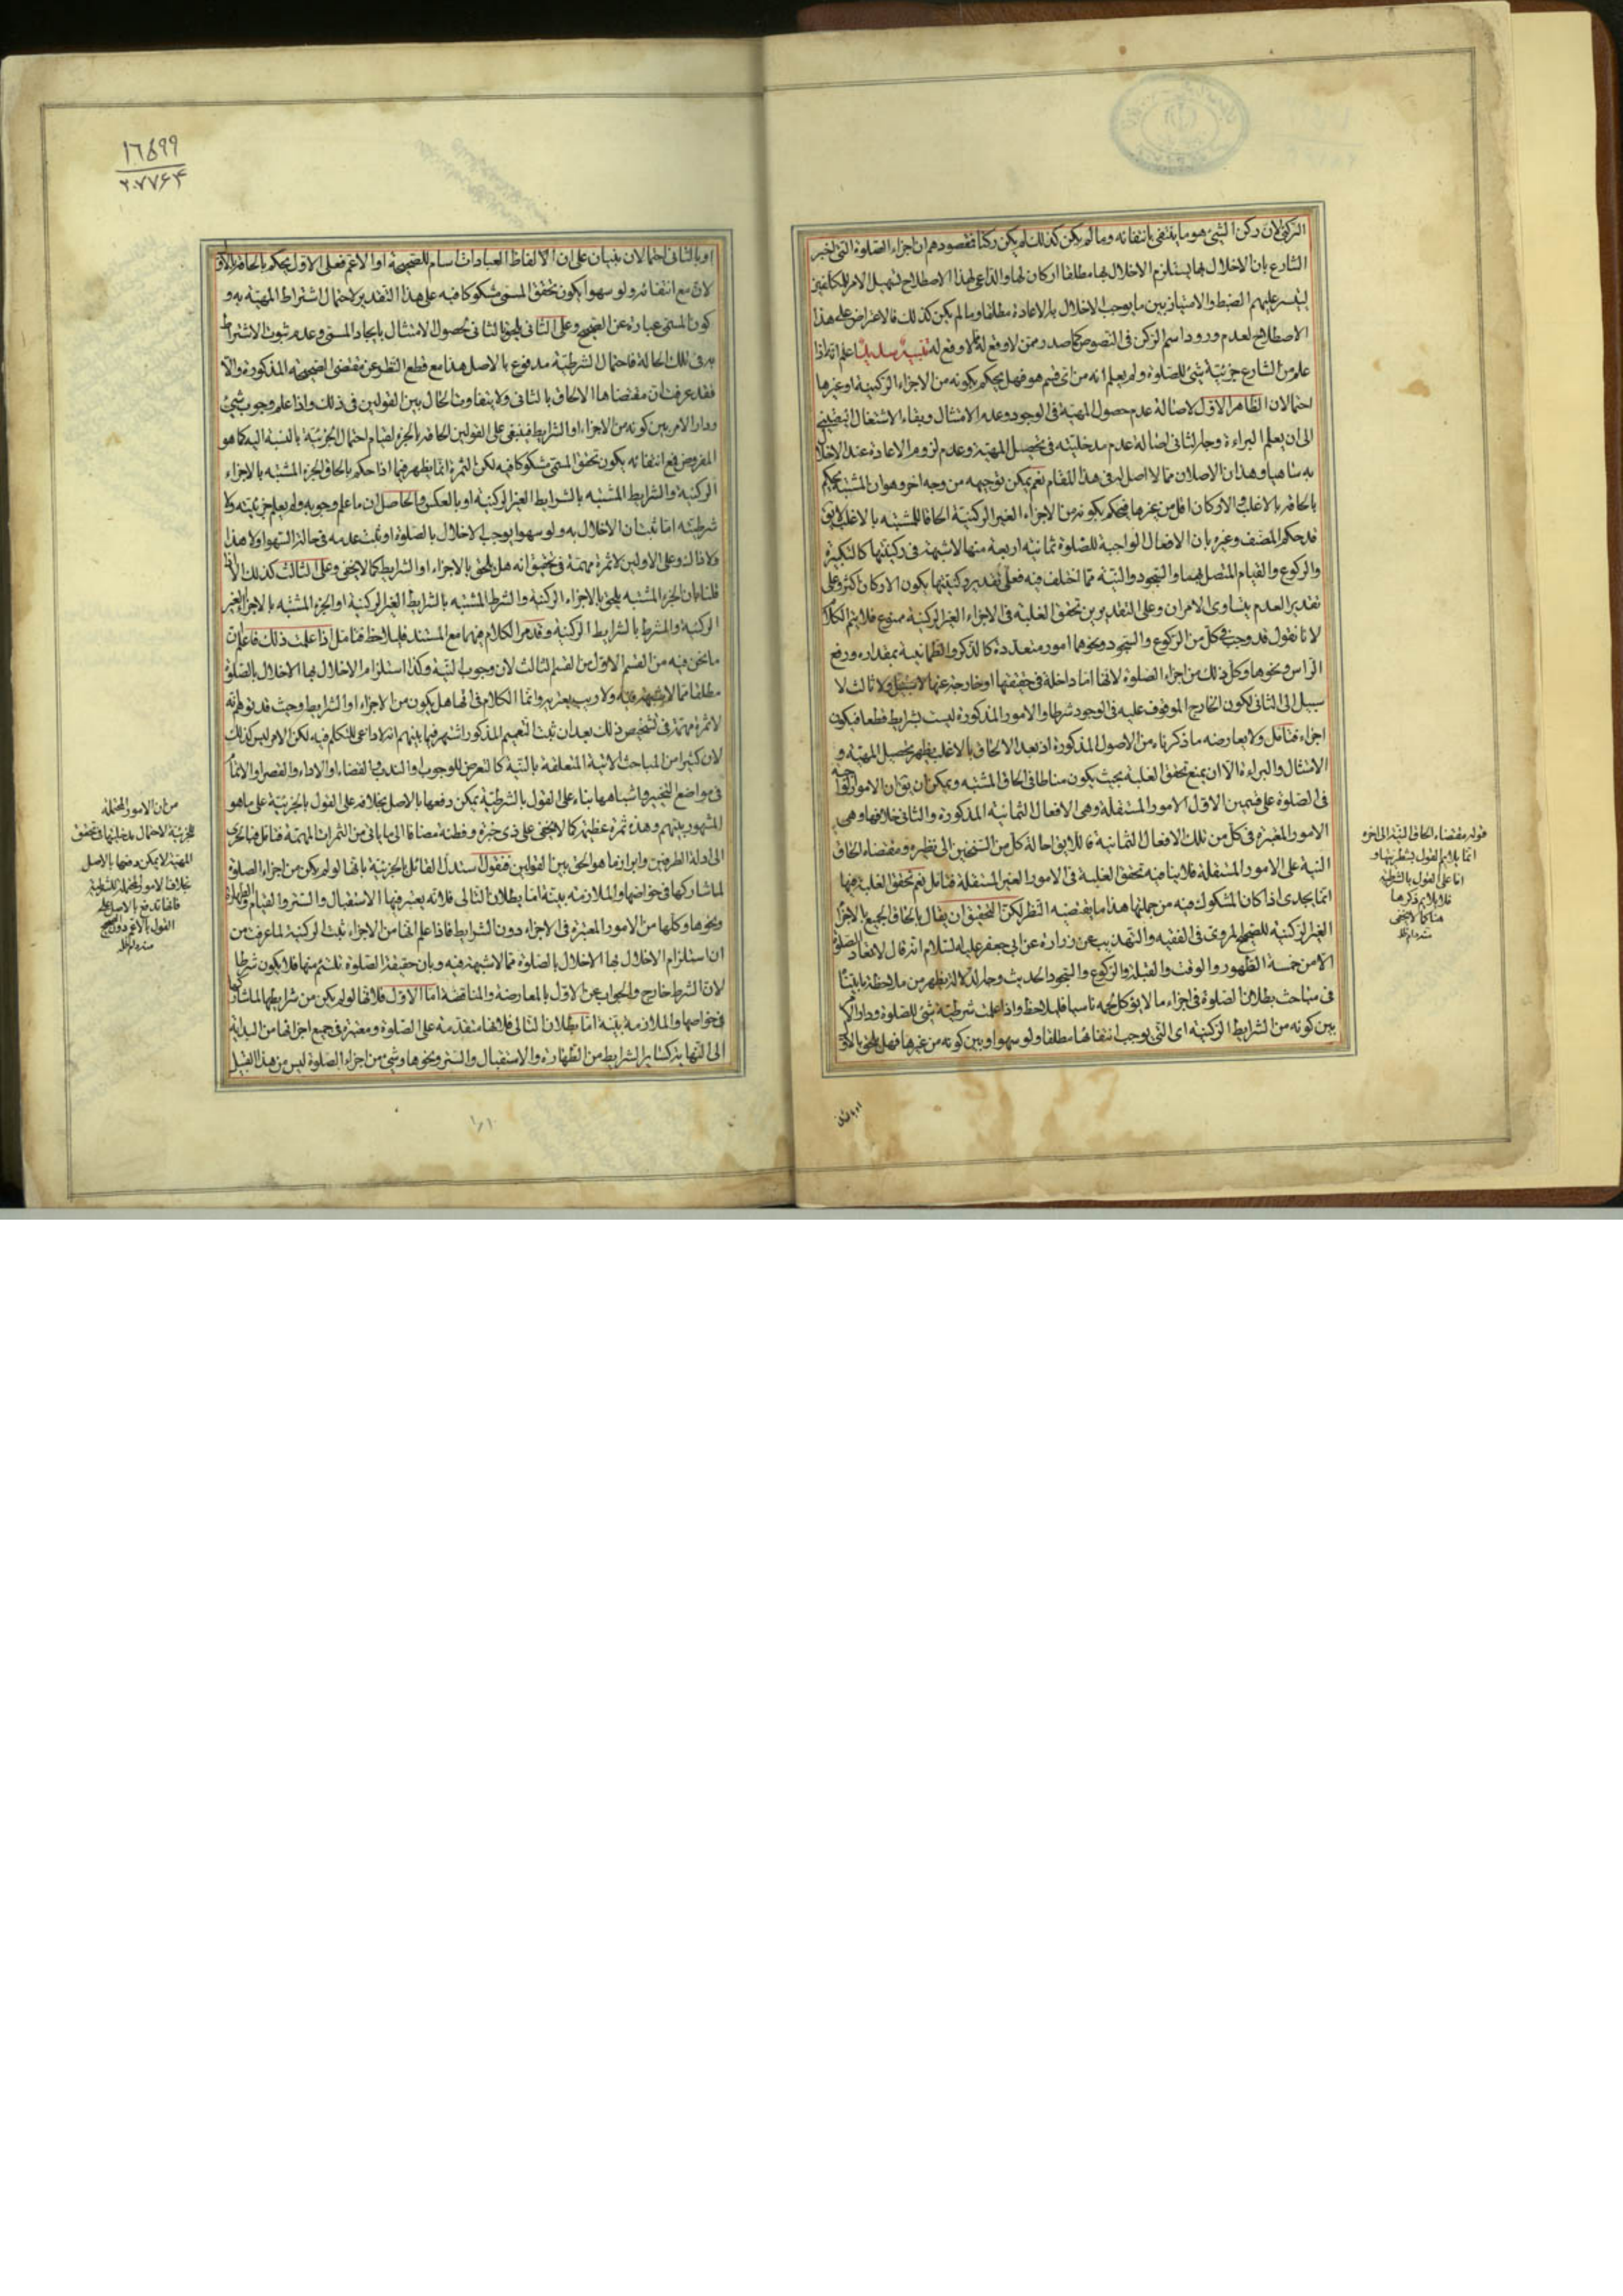 الركنى لان ركن الشئ هو ما ينتفى بانتفائه وما لم يكن كذلك لم يكن ركنا فمقصودهم ان اجزاء الصلوة التى اخبر
الشارع بان الاخلال بها يستلزم الاخلال بها مطلقا اركان لها والداعى لهذا الاصطلاح تسهيل الامر للمكلفين
ليتيسر عليهم الضبط والامتياز بين ما يوجب الاخلال به الاعادة مطلقا وما لم يكن كذلك فالاعتراض على هذا
الاصطلاح لعدم ورود اسم الركن فى النصوص كما صدر ممن لا وقع له لا وقع له اعلم انه اذا
علم من الشارع جزئية شئ للصلوة ولم يعلم انه من اى قسم هو فهل يحكم بكونه من الاجزاء الركنية او غيرها
احتمالان الظاهر الاول لاصالة عدم حصول المهية فى الوجود وعدم الامتثال وبقاء الاشتغال
الى ان يعلم البراءة وجه الثانى اصالة عدم مدخليته فى تحصيل المهية وعدم لزوم الاعادة عند الاخلال
به ساهيا وهذان الاصلان مما لا اصل له فى هذا المقام نعم يمكن توجيهه من وجه اخر وهو ان المشتبه يحكم
بالحاقه بالاغلب والاركان اقل من غيرها فيحكم بكونه من الاجزاء الغير الركنية الحاقا للمشتبه بالاغلب لا يق
قد حكم المصنف وغيره بان الافعال الواجبة للصلوة ثمانية اربعة منها لا شبهة فى ركنيتها كالتكبيرة
والركوع والقيام المتصل بهما والسجود والنية مما اختلف فيه فعلى تقدير ركنيتها يكون الاركان اكثر وعلى
تقدير العدم يتساوى الامران وعلى التقديرين تحقق الغلبة فى الاجزاء الغير الركنية ممنوع فلا يتم الكلام
لانا نقول قد وجب فى كل من الركوع والسجود ونحوهما امور متعددة كالذكر والطمانينة بمقداره ورفع
الراس ونحوها وكل ذلك من اجزاء الصلوة لانها اما داخلة فى حقيقتها او خارجة عنها ولا ثالث لا
سبيل الى الثانى لكون الخارج الموقوف عليه فى الوجود شرطا والامور المذكورة ليست بشرايط قطعا فيكون
اجزاء فتامل ولا يعارضه ما ذكرناه من الاصول المذكورة اذ بعد الالحاق بالاغلب يظهر تحصيل المهية و
الامتثال والبراءة الا ان يمنع تحقق الغلبة بحيث يكون مناطا فى الحاق المشتبه ويمكن ان يق ان الامور الواجبة
فى الصلوة على قسمين الاول الامور المستقلة وهى الافعال الثمانية المذكورة والثانى خلافها وهى
الامور المعتبرة فى كل من تلك الافعال الثمانية فاللايق احالة كل من السنخين الى نظيره ومقتضاه الحاق
النية على الامور المستقلة فلا ينافيه تحقق الغلبة فى الامور الغير المستقلة فتامل نعم تحقق الغلبة فيها
انما يجدى اذا كان المشكوك فيه من جملتها هذا ما يقتضيه النظر لكن التحقيق ان يقال بالحاق الجميع بالاجزاء
الغير الركنية للصحيح المروى فى الفقيه والتهذيب عن زرارة عن ابى جعفر عليه السلام انه قال لا تعاد الصلوة
الا من خمسة الطهور والوقت والقبلة والركوع والسجود الحديث وجه الدلالة يظهر من ملاحظة ما بيناه
فى مباحث بطلان الصلوة فى اجزاء ما لا يؤكل لحمه ناسيا فليلاحظ واذا علمت شرطية شئ للصلوة ودار الامر
بين كونه من الشرايط الركنية اى التى يوجب انتفائها مطلقا ولو سهوا وبين كونه من غيرها فهل يلحق بالاول
او بالثانى
قوله مقتضاه الحاق النية الى اخره
انما يلايم القول بشطريتها و
اما على القول بالشرطية
فلا يلايم ذكرها
هنا كما لا يخفى
منه دام ظله
١٦٥٩٩
٢٠٧٧٦٤
او بالثانى احتمالان مبنيان على ان الالفاظ العبادات اسام للصحيحة او الاعم فعلى الاول يحكم بالحاقه بالاول
لان مع انتفائه ولو سهوا يكون تحقق المسمى مشكوكا فيه على هذا التقدير لاحتمال اشتراط المهية به و
كون المسمى عبارة عن الصحيح وعلى الثانى يلحق بالثانى لحصول الامتثال بايجاد المسمى وعدم ثبوت الاشتراط
به فى تلك الحالة فاحتمال الشرطية مدفوع بالاصل هذا مع قطع النظر عن مقتضى الصحيحة المذكورة والا
فقد عرفت ان مقتضاها الالحاق بالثانى ولا يتفاوت الحال بين القولين فى ذلك واذا علم وجوب شئ
ودار الامر بين كونه من الاجزاء او الشرايط فينبغى على القولين الحاقه بالجزء لقيام احتمال الجزئية بالنسبة اليه كما هو
المفروض فمع انتفائه يكون تحقق المسمى مشكوكا فيه لكن الثمرة انما يظهر فيما اذا حكم بالحاق الجزء المشتبه بالاجزاء
الركنية والشرايط المشتبه بالشرايط الغير الركنية او بالعكس والحاصل ان ما علم وجوبه ولم يعلم جزئيته ولا
شرطيته اما ثبت ان الاخلال به ولو سهوا يوجب الاخلال بالصلوة او ثبت عدمه فى حالة السهو او لا هذا
ولا ذاك وعلى الاولين لا ثمرة مهمة فى تحقيق انه هل يلحق بالاجزاء او الشرايط كما لا يخفى وعلى الثالث كذلك الا اذا
قلنا بان الجزء المشتبه يلحق بالاجزاء الركنية والشرط المشتبه بالشرايط الغير الركنية او الجزء المشتبه بالاجزاء الغير
الركنية والمشرط بالشرايط الركنية وقد مر الكلام فيهما مع المستند فليلاحظ فتامل اذا علمت ذلك فاعلم ان
ما نحن فيه من القسم الاول من القسم الثالث لان وجوب النية وكذا استلزام الاخلال بها الاخلال بالصلوة
مطلقا مما لا شبهة فيه ولا ريب يعتريه وانما الكلام فى انها هل يكون من الاجزاء او الشرايط وحيث قد توهم انه
لا ثمرة مهمة فى تشخيص ذلك بعد ان ثبت التعميم المذكور اشتهر فيما بينهم انه لا داعى للتكلم فيه لكن الامر ليس كذلك
لان كثيرا من المباحث الاتية المتعلقة بالنية كالتعرض للوجوب والندب والقضاء والاداء والقصر والاتمام
فى مواضع التخيير واشباهها بناء على القول بالشرطية يمكن دفعها بالاصل بخلافه على القول بالجزئية على ما هو
المشهور بينهم وهذه ثمرة عظيمة كما لا يخفى على ذى خبرة وفطنة مضافا الى ما ياتى من الثمرات المهمة فتامل فبالحرى
الى ادلة الطرفين وابراز ما هو الحق بين القولين فنقول استدل القائل بالجزئية بانها لو لم يكن من اجزاء الصلوة
لما شاركها فى خواصها والملازمة بينة اما بطلان التالى فلانه يعتبر فيها الاستقبال والستر والقيام والطهارة
ونحوها وكلها من الامور المعتبرة فى الاجزاء دون الشرايط فاذا علم انها من الاجزاء ثبت الركنية لما عرفت من
ان استلزام الاخلال بها الاخلال بالصلوة مما لا شبهة فيه وبان حقيقة الصلوة تلتئم منها فلا يكون شرطا
لان الشرط خارج والجواب عن الاول بالمعارضة والمناقضة اما الاول فلانها لو لم يكن من شرايطها لما شاركها
فى خواصها والملازمة بينة اما بطلان التالى فلانها متقدمة على الصلوة ومعتبرة فى جميع اجزائها من البداية
الى النهاية كساير الشرايط من الطهارة والاستقبال والستر ونحوها وشئ من اجزاء الصلوة ليس من هذا القبيل
من ان الامور المحتملة
للجزئية لاحتمال مدخليتها فى تحقق
المهية لا يمكن دفعها بالاصل
بخلاف الامور المحتملة للشرطية
فانها تدفع بالاصل على
القول بالاعم دون الصحيح
منه دام ظله